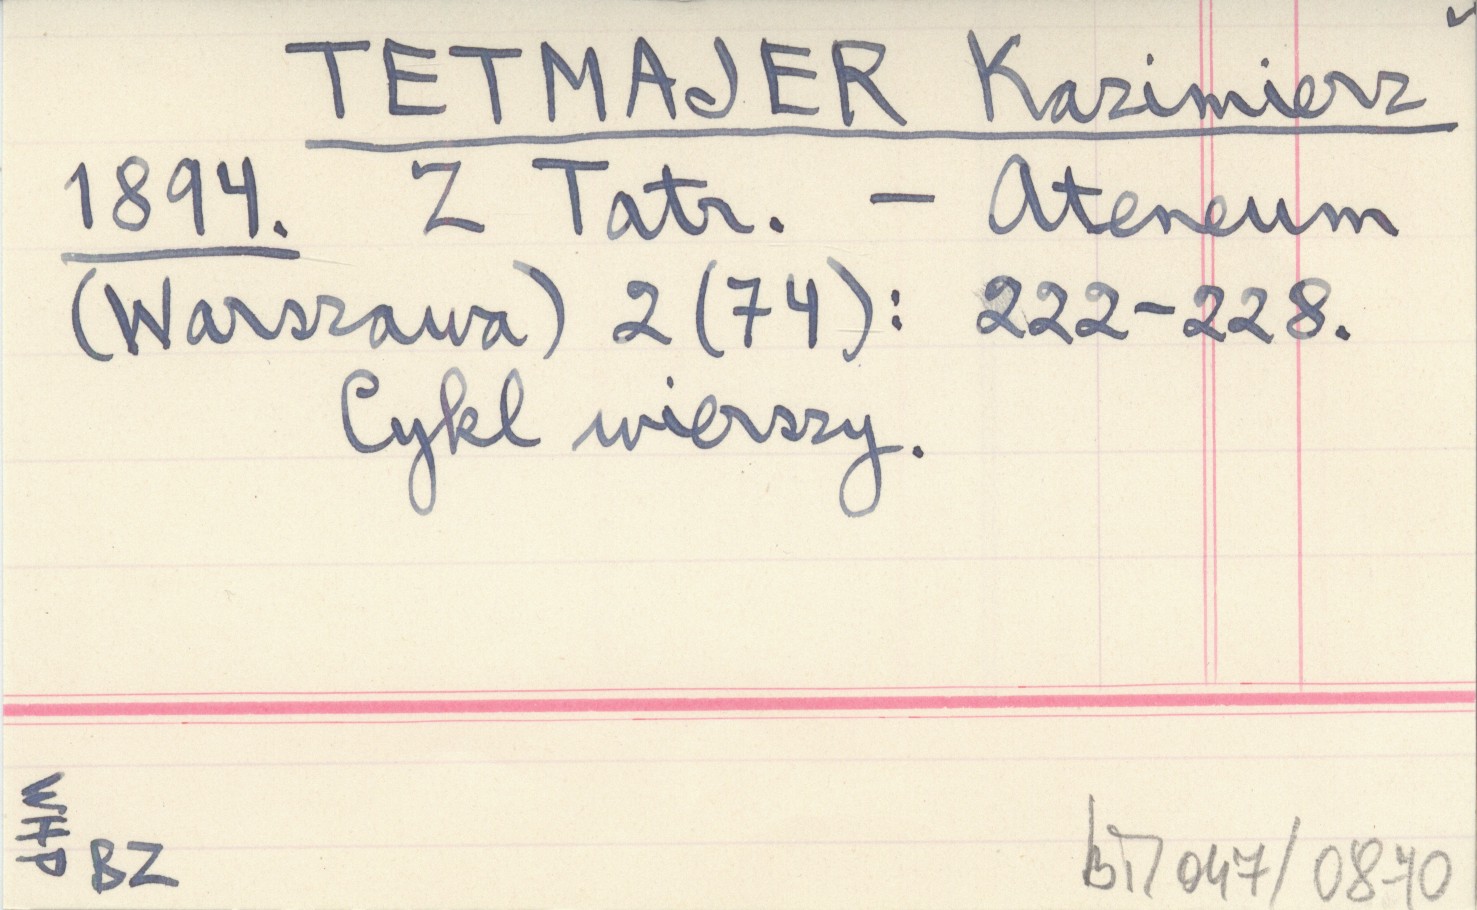 TETMAJER Kazimierz
1894. Z Tatr. - Ateneum
(Warszawa) 2(74): 222-228.
Cykl wierszy.
WHP
BZ
047/0870